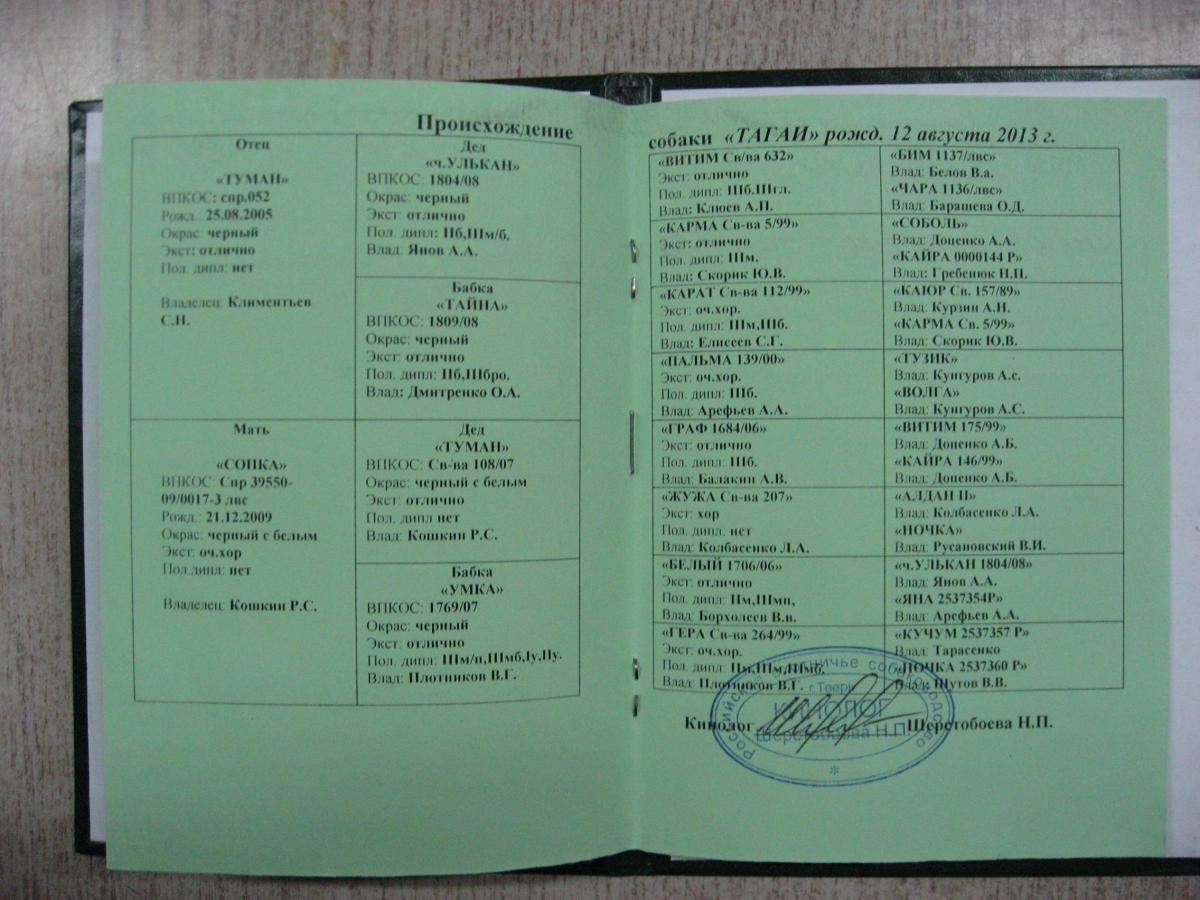 Происхождение
Отец
«ТУМАН»
ВПКОС: спр.052
Рожд.: 25.08.2005
Окрас: черный
Экст: отлично
Пол. дипл: нет
Владелец: Климентьев
С.Н.
Дед
«ч.УЛЬКАН»
ВПКОС: 1804/08
Окрас: черный
Экст: отлично
Пол. дипл: IIб,IIIм/б.
Влад: Янов А.А.
Бабка
«ТАЙНА»
ВПКОС: 1809/08
Окрас: черный
Экст: отлично
Пол. дипл: IIб,IIIбро.
Влад: Дмитренко О.А.
Мать
«СОПКА»
ВПКОС: Спр 39550-
09/0017-3 лвс
Рожд.: 21.12.2009
Окрас: черный с белым
Экст: оч.хор
Пол.дипл: нет
Владелец: Кошкин Р.С.
Дед
«ТУМАН»
ВПКОС: Св-ва 108/07
Окрас: черный с белым
Экст: отлично
Пол. дипл нет
Влад: Кошкин Р.С.
Бабка
«УМКА»
ВПКОС: 1769/07
Окрас: черный
Экст: отлично
Пол. дипл: IIIм/п,IIIмб,Iу,IIу.
Влад: Плотников В.Г.
собаки «ТАГАЙ» рожд. 12 августа 2013 г.
«ВИТИМ Св/ва 632»
Экст: отлично
Пол. дипл: IIIб,IIIгл.
Влад: Клюев А.П.
«БИМ 1137/лвс»
Влад: Белов В.а.
«ЧАРА 1136/лвс»
Влад: Барашева О.Д.
«КАРМА Св-ва 5/99»
Экст: отлично
Пол. дипл: IIIм.
Влад: Скорик Ю.В.
«СОБОЛЬ»
Влад: Доценко А.А.
«КАЙРА 0000144 Р»
Влад: Гребенюк Н.П.
«КАРАТ Св-ва 112/99»
Экст: оч.хор.
Пол. дипл: IIIм,IIIб.
Влад: Елисеев С.Г.
«КАЮР Св. 157/89»
Влад: Курзин А.Н.
«КАРМА Св. 5/99»
Влад: Скорик Ю.В.
«ПАЛЬМА 139/00»
Экст: оч.хор.
Пол. дипл: IIIб.
Влад: Арефьев А.А.
«ТУЗИК»
Влад: Кунгуров А.с.
«ВОЛГА»
Влад: Кунгуров А.С.
«ГРАФ 1684/06»
Экст: отлично
Пол. дипл: IIIб.
Влад: Балакин А.В.
«ВИТИМ 175/99»
Влад: Доценко А.Б.
«КАЙРА 146/99»
Влад: Доценко А.Б.
«ЖУЖА Св-ва 207»
Экст: хор
Пол. дипл: нет
Влад: Колбасенко Л.А.
«АЛДАН II»
Влад: Колбасенко Л.А.
«НОЧКА»
Влад: Русановский В.И.
«БЕЛЫЙ 1706/06»
Экст: отлично
Пол. дипл: IIм,IIIмп,
Влад: Борхолеев В.в.
«ч.УЛЬКАН 1804/08»
Влад: Янов А.А.
«ЯНА 2537354Р»
Влад: Арефьев А.А.
«ГЕРА Св-ва 264/99»
Экст: оч.хор.
Пол. дипл: IIм,IIIм,IIIмб.
Влад: Плотников В.Г.
«КУЧУМ 2537357 Р»
Влад: Тарасенко
«НОЧКА 2537360 Р»
Влад: Шутов В.В.
Кинолог Шерстобоева Н.П.
Российское охотничье собаководство
г.Тверь
КИНОЛОГ
Шерстобоева Н.П.